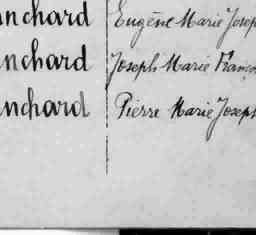 nchard Eugène Marie Josep
nchard Joseph Marie Franço
nchard Pierre Marie Joseph